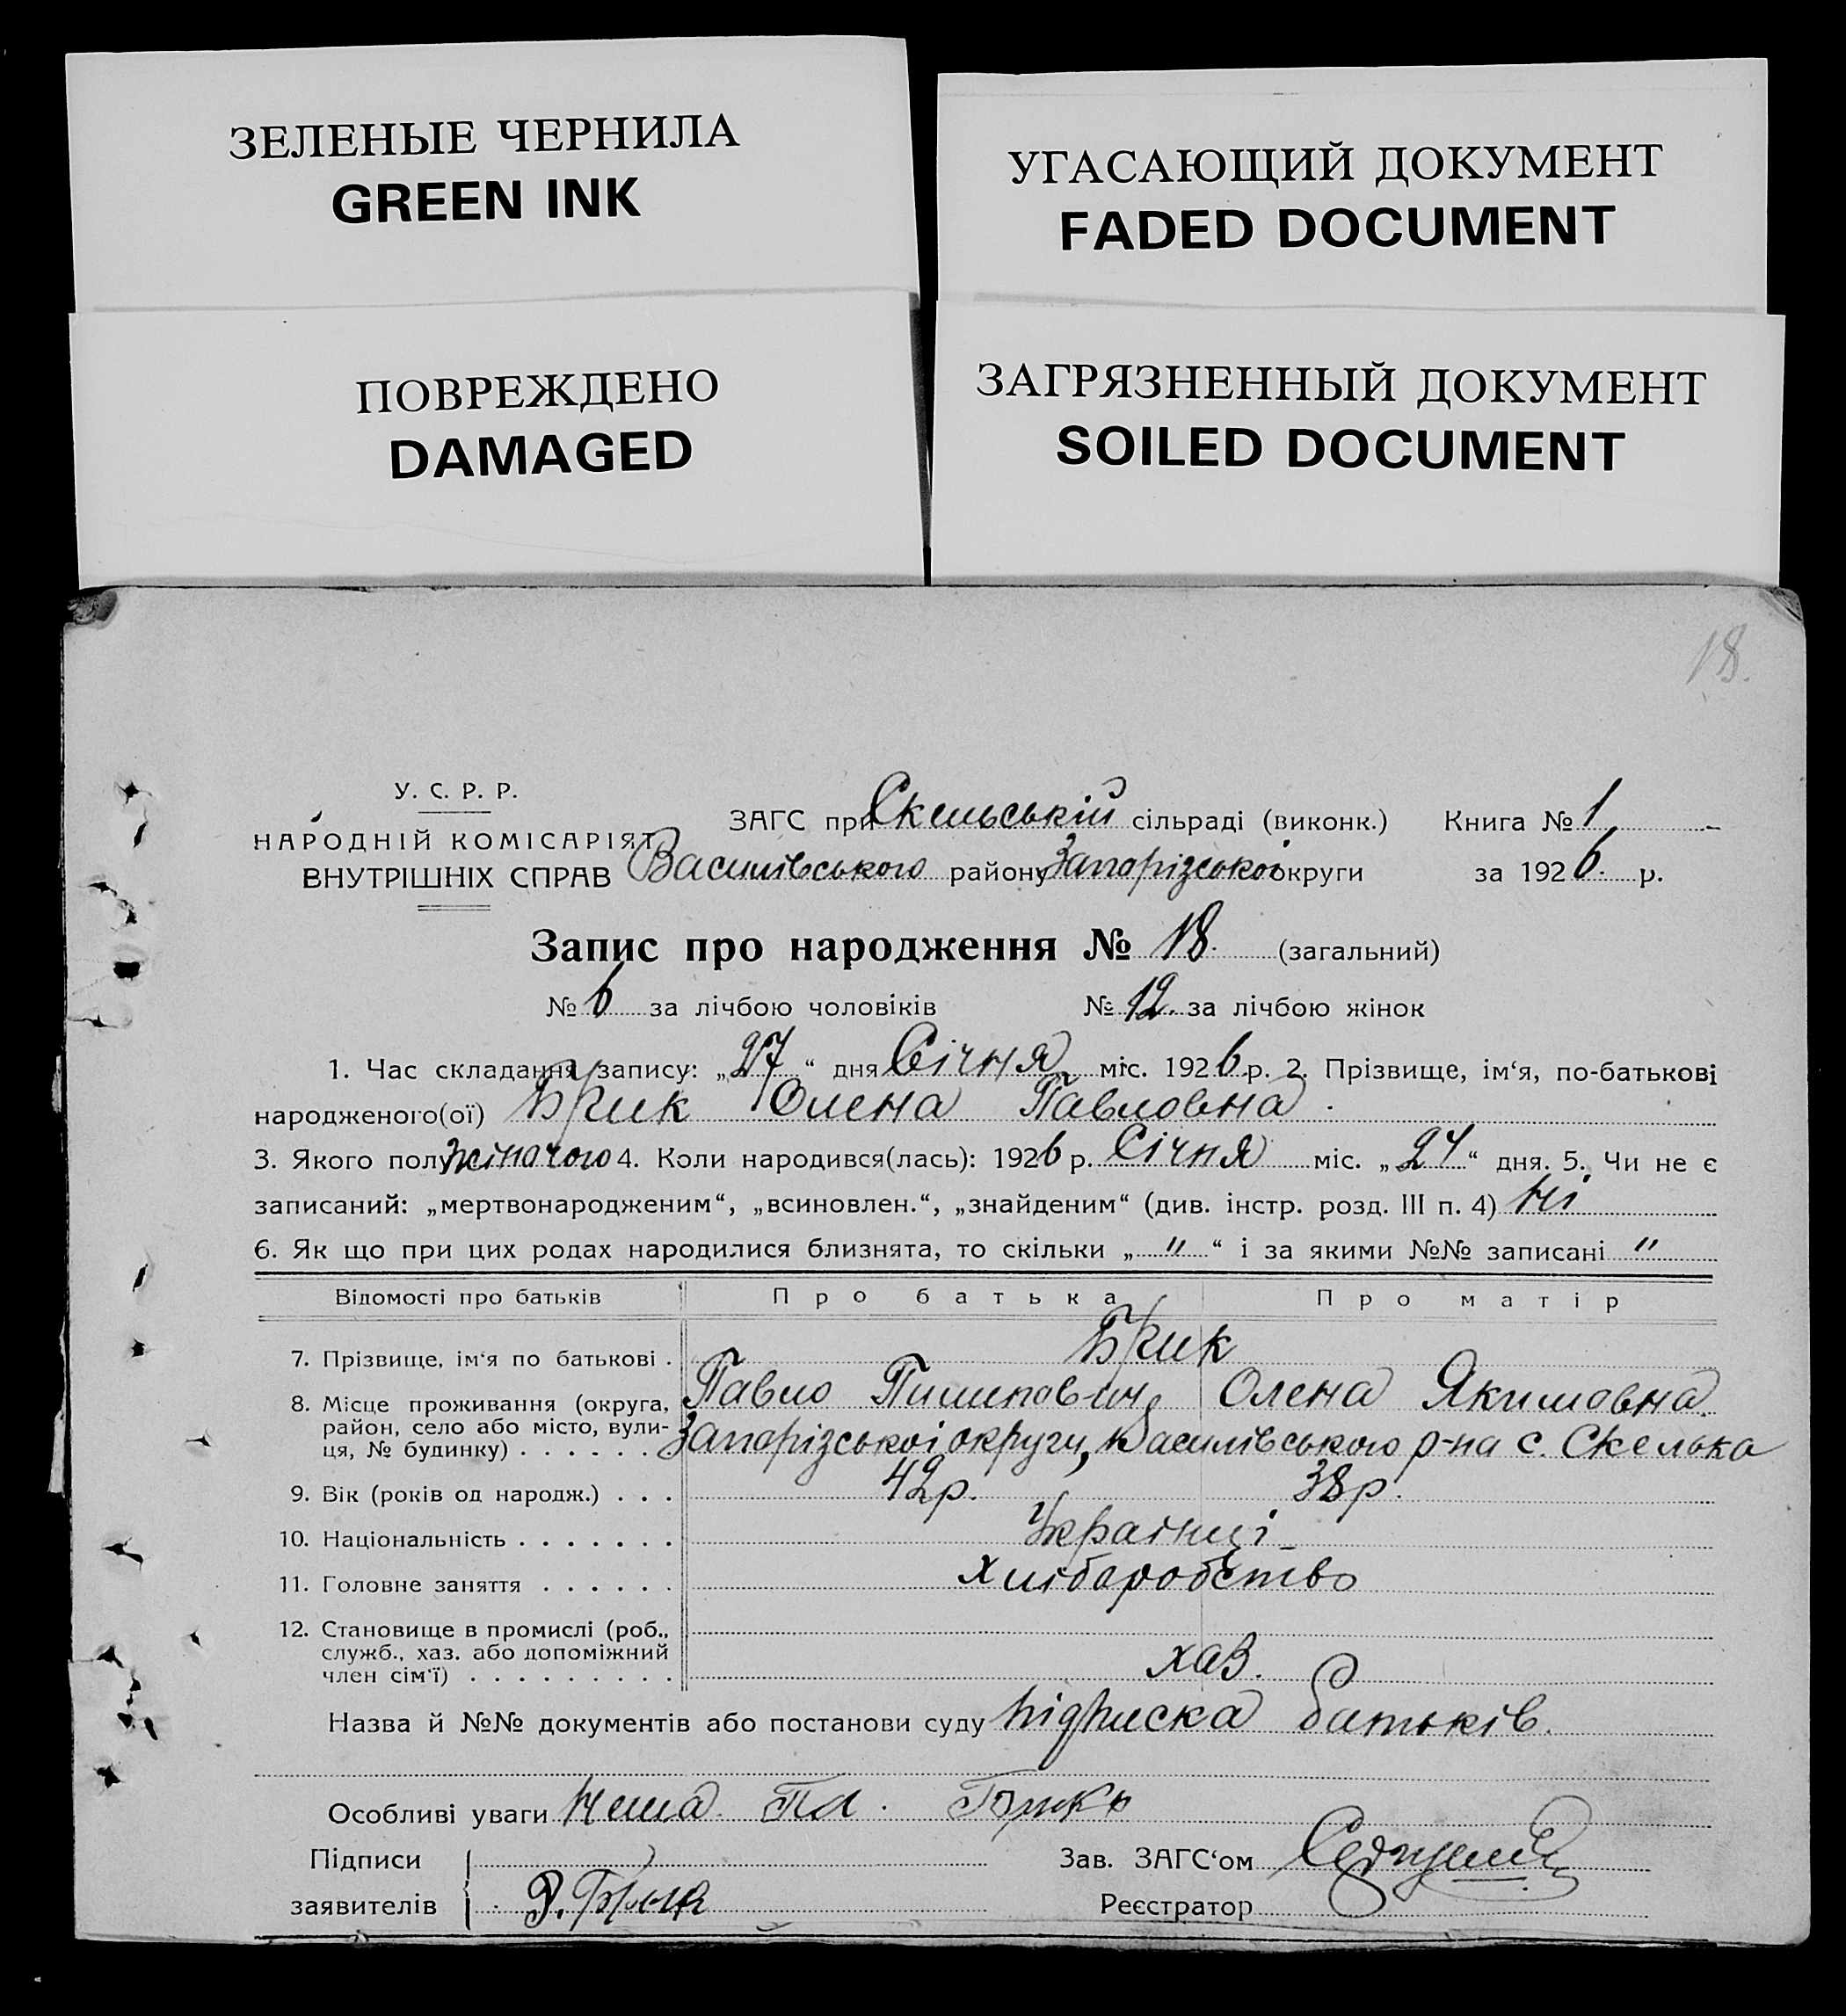 ЗЕЛЕНЫЕ ЧЕРНИЛА
GREEN INK
УГАСАЮЩИЙ ДОКУМЕНТ
FADED DOCUMENT
ПОВРЕЖДЕНО
DAMAGED
ЗАГРЯЗНЕННЫЙ ДОКУМЕНТ
SOILED DOCUMENT
18.
У. С. Р. Р.
НАРОДНІЙ КОМІСАРІЯТ
ВНУТРІШНІХ СПРАВ
ЗАГС при Скельській сільраді (виконк.) Книга № 1
Василівського району Запорізської округи за 1926. р.
Запис про народження № 18. (загальний)
№ 6 за лічбою чоловіків № 12. за лічбою жінок
1. Час складання запису: „27“ дня Січня міс. 1926 р. 2. Прізвище, ім‘я, по-батькові
народженого(ої) Брик Олена Павловна.
3. Якого полу жіночого 4. Коли народився(лась): 1926 р. Січня міс. „24“ дня. 5. Чи не є
записаний: „мертвонародженим“, „всиновлен.“, „знайденим“ (див. інстр. розд. III п. 4) ні
6. Як що при цих родах народилися близнята, то скільки „ " “ і за якими №№ записані "
Відомості про батьків Про батька Про матір
7. Прізвище, ім‘я по батькові . Брик
Павло Пилипович Олена Якимовна.
8. Місце проживання (округа,
район, село або місто, вули-
ця, № будинку) . . . . . . Запорізської округи, Василівського р-на с. Скелька
9. Вік (років од народж.) . . . 42 р. 38 р.
10. Національність . . . . . . . Українці
11. Головне заняття . . . . . . хліборобство
12. Становище в промислі (роб.,
служб., хаз. або допоміжний
член сім‘ї) . . . . . . . . . хаз.
Назва й №№ документів або постанови суду підписка батьків.
Особливі уваги
Підписи
заявителів Брик
Зав. ЗАГС‘ом
Реєстратор